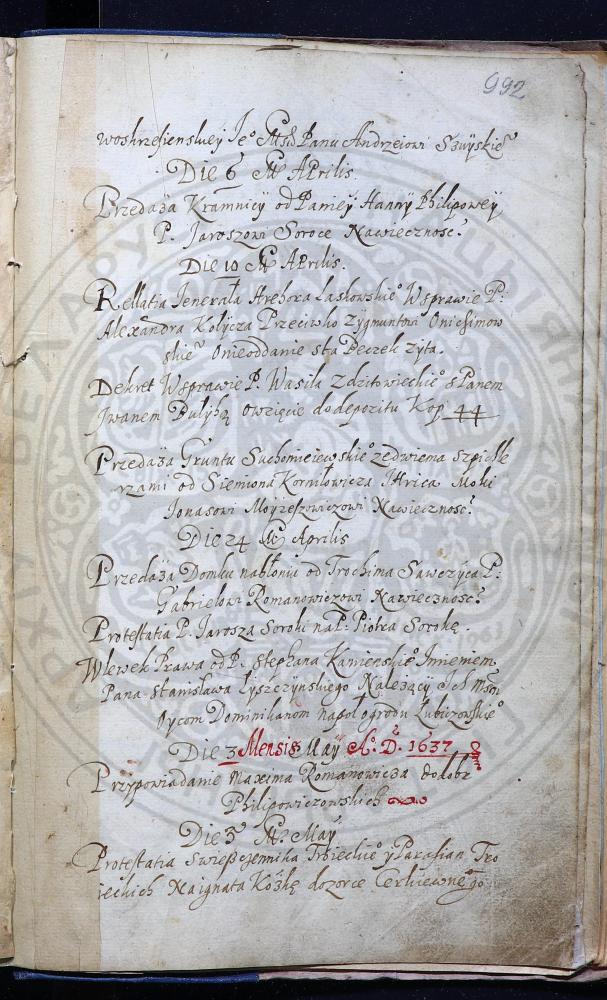 992
woskrzesienskiey Je° Msci Panu Andrzeiowi Szuyskie°
Die 6 M Aprilis
Przedaża Kramnicy od Paniey Hanny Philipowey
P. Jaroszowi Soroce Nawiecznosc.
Die 10 M Aprilis.
Rellatia Jenerała Hrehora Laskowskie° Wsprawie P:
Alexandra Kolycza Przeciwko Zygmuntowi Onichimow
skie° Onieoddanie sta Beczek żyta.
Dekret Wsprawie P. Wasila Zdzitowieckie° s Panem
Jwanem Bulyhą owzięcie dodepozitu Kop 44
Przedaża Gruntu Suchomieiewskie° zedwiema szpichle
rzami od Siemiona Korniłowicza Jhrica Moki
Jonasowi Moyżeszowiczowi Nawiecznosc.
Die 24 M Aprilis
Przedaża Domku nabłoniu od Trochima Sawczyca P:
Gabrielowi Romanowiczowi Nawiecznosc.
Protestatia P. Jarosza Soroki na P. Piotra Sorokę.
Wlewek Prawa od P. Stephana Kamienskie° Jmieniem
Pana Stanisława Łyszczynskiego Należący Jch Msciom
Oycom Dominikanom na poł ogrodu Lubiczowskie°
Die 3 Mensis May A°: D. 1637
Przypowiadanie Maxima Romanowicza do dobr
Philipowiczowskich
Die 5 M. May
Protestatia Swieszczennika Troieckie° y Parafian Tro
ieckich Naignata Kożkę dozorce Cerkiewnego